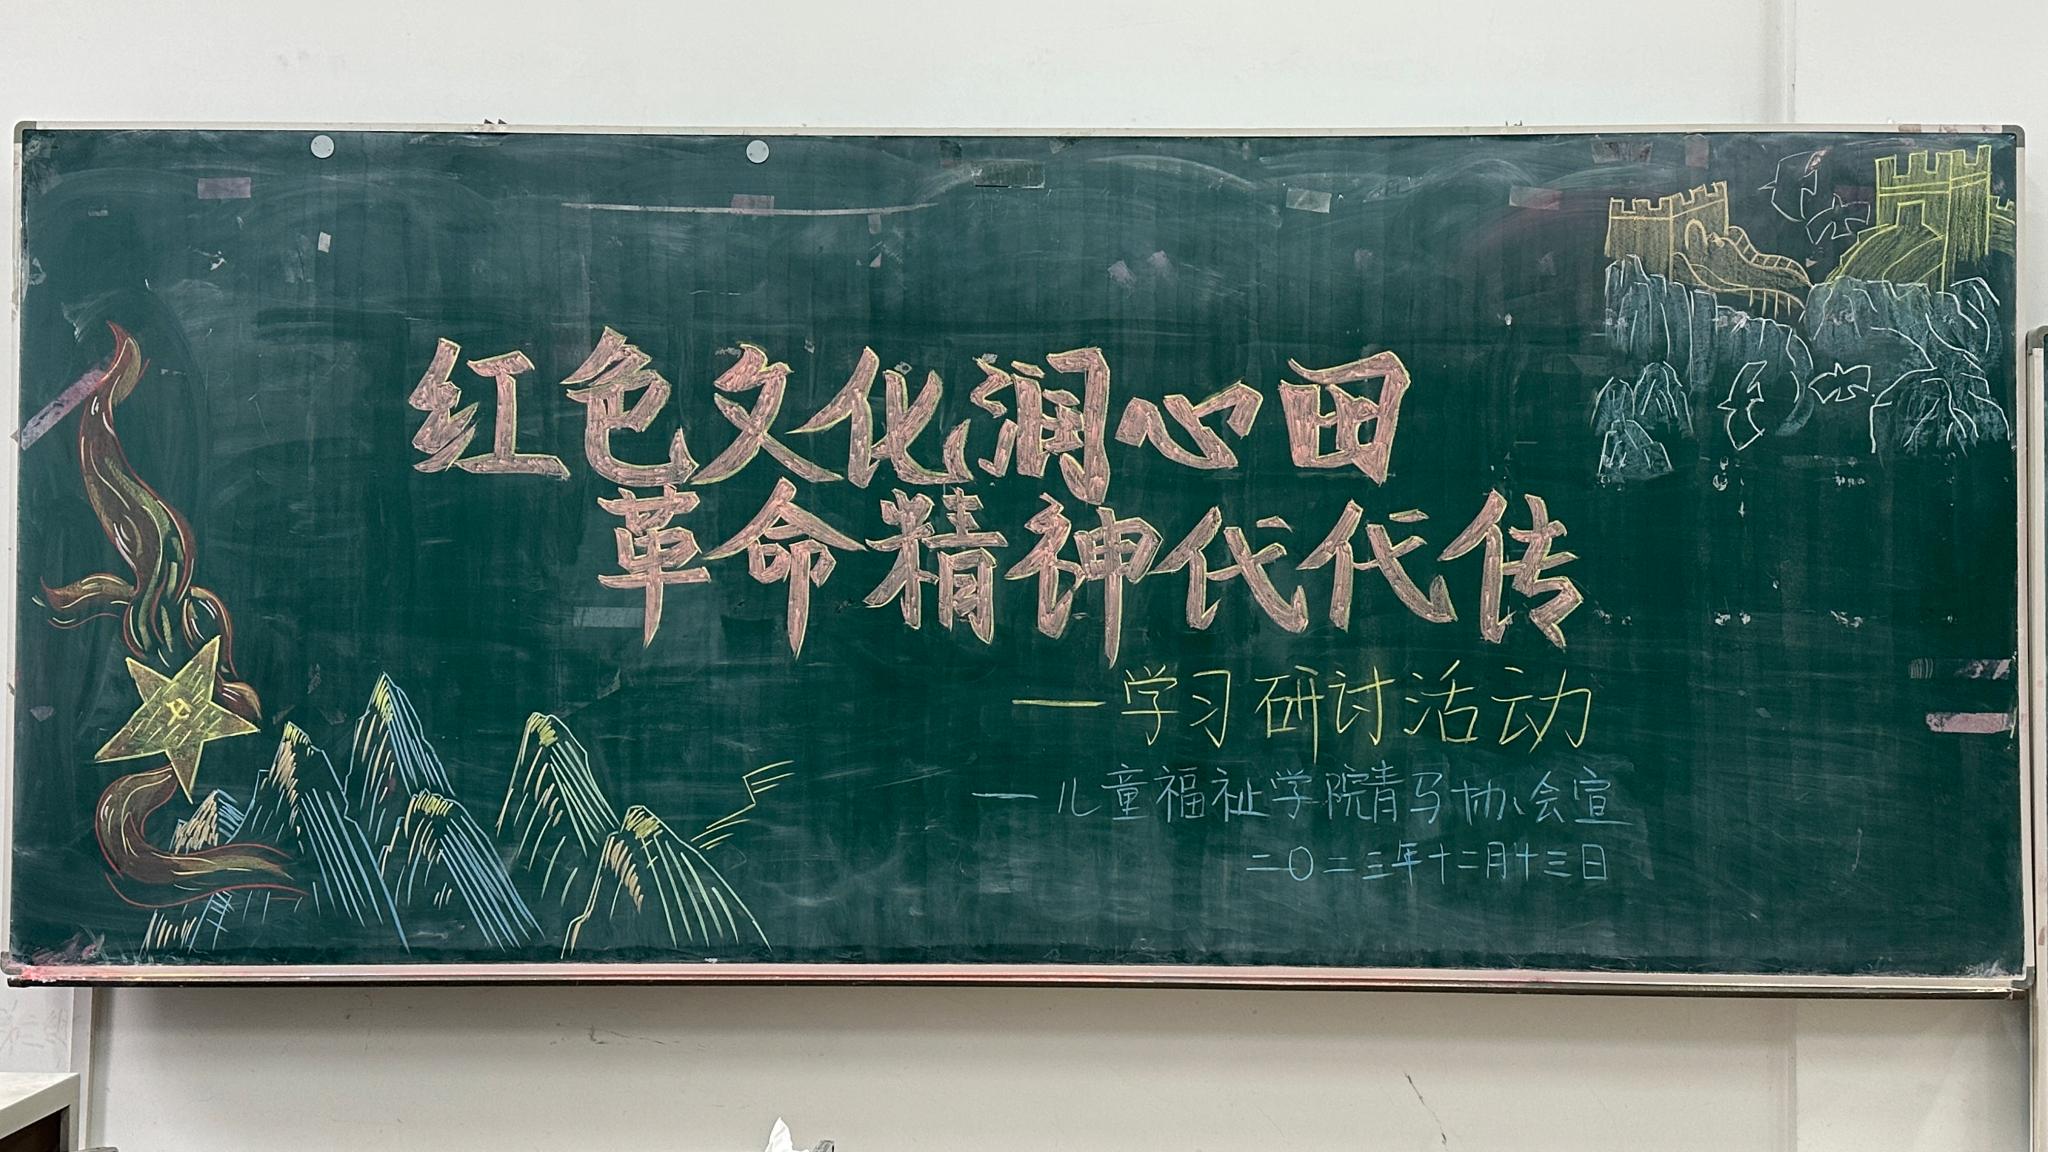 红色文化润心田
革命精神代代传
—学习研讨活动
—儿童福祉学院青马协会宣
二〇二三年十二月十三日